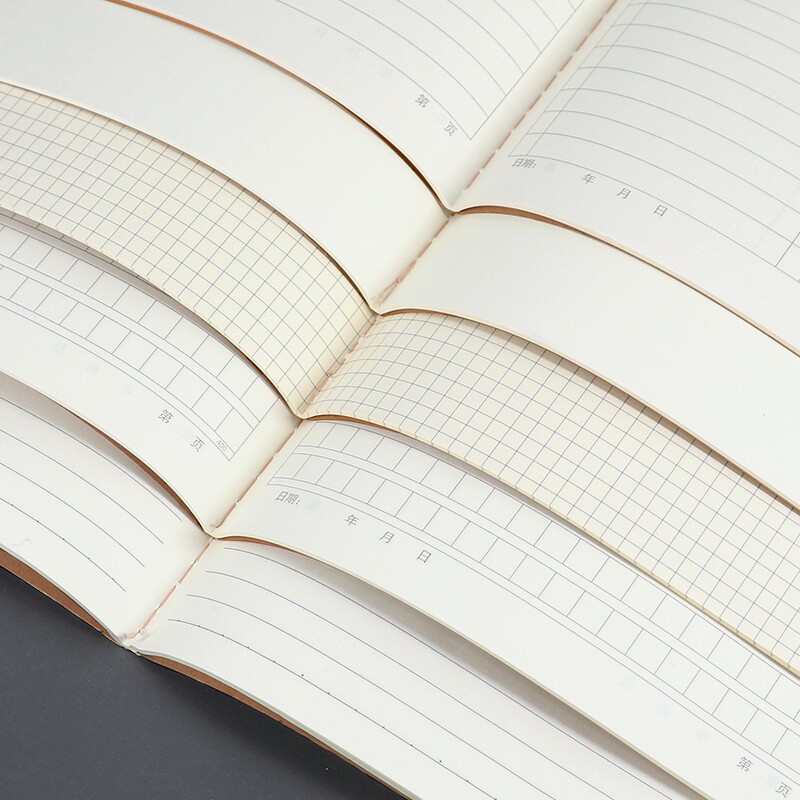 第 页
日期: 年 月 日
第 页
日期: 年 月 日
第 页